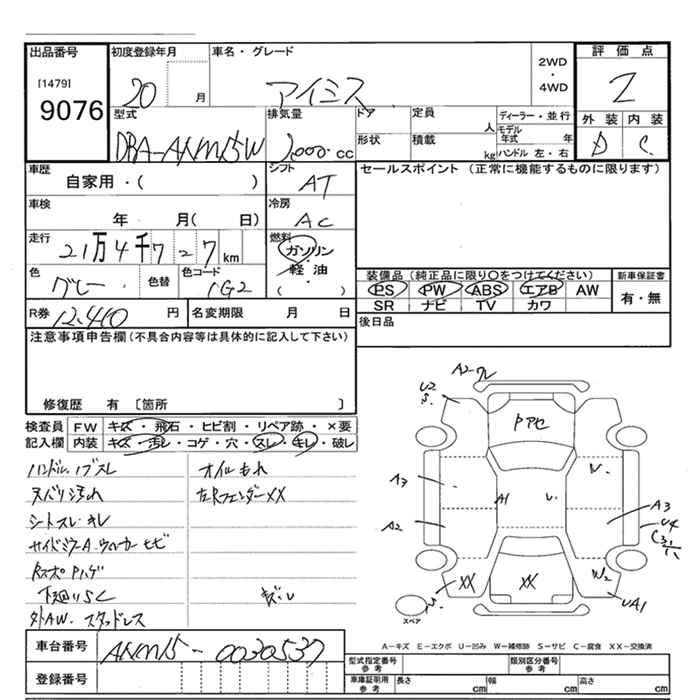 出品番号 初度登録年月 車名・グレード 2WD・4WD 評価点
[1479]
9076 20 月 アイシス 2
型式 排気量 ドア 定員 人 ディーラー・並行 外装 内装
DBA-ANM15W 2,000 cc 形状 積載 kg モデル年式 年 D C
ハンドル 左・右
車歴 シフト セールスポイント (正常に機能するものに限ります)
自家用・( ) AT
車検 冷房
年 月( 日) AC
走行 燃料
21万4千727km ガソリン・軽油・( )
色 色替 色コード 装備品(純正品に限り○をつけてください) 新車保証書
グレー 1G2 PS PW ABS エアB AW 有・無
SR ナビ TV カワ
R券 12,410 円 名変期限 月 日 後日品
注意事項申告欄(不具合内容等は具体的に記入して下さい)
修復歴 有 〔箇所 〕
検査員 FW キズ・飛石・ヒビ割・リペア跡・×要
記入欄 内装 キズ・汚レ・コゲ・穴・スレ・キレ・破レ
ハンドル、ノブスレ オイルもれ
天バリ汚れ 左Rフェンダー××
シートスレ・キレ
サイドミラーA ウィーカーヒビ
RスポPハゲ
下廻りSC キズレ
外AW. スタッドレス
A2-ワレ
U2
S.
Pアセ
A3 A1 U. A3
A2 U4
XX XX W2
UA1
スペア
A-キズ E-エクボ U-凹み W-補修跡 S-サビ C-腐食 XX-交換済
車台番号 ANM15-0030537
登録番号
型式指定番号 参考 類別区分番号 参考
車庫証明用 参考 長さ cm 幅 cm 高さ cm